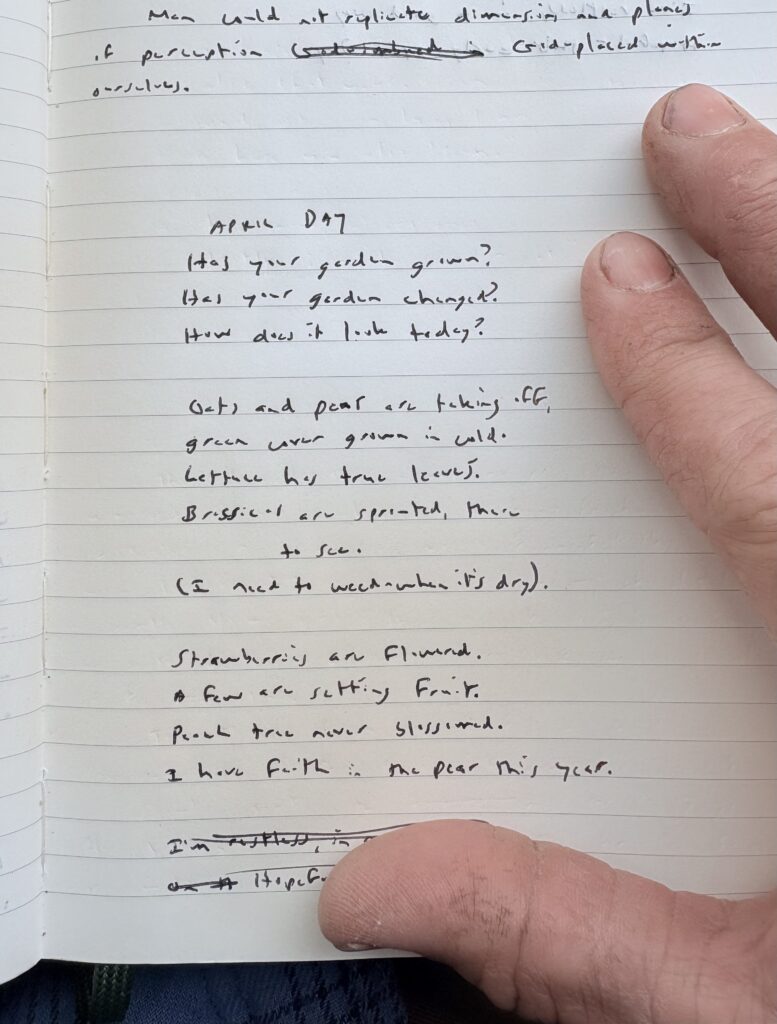 Man could not replicate dimensions and planes
of perception God-placed within
ourselves.
APRIL DAY
Has your garden grown?
Has your garden changed?
How does it look today?
Oats and peas are taking off,
green cover grown in cold.
Lettuce has true leaves.
Brassicas are sprouted, there
to see.
(I need to weed-when it's dry).
Strawberries are flowered.
A few are setting fruit.
Peach tree never blossomed.
I have faith in the pear this year.
I'm restless, in